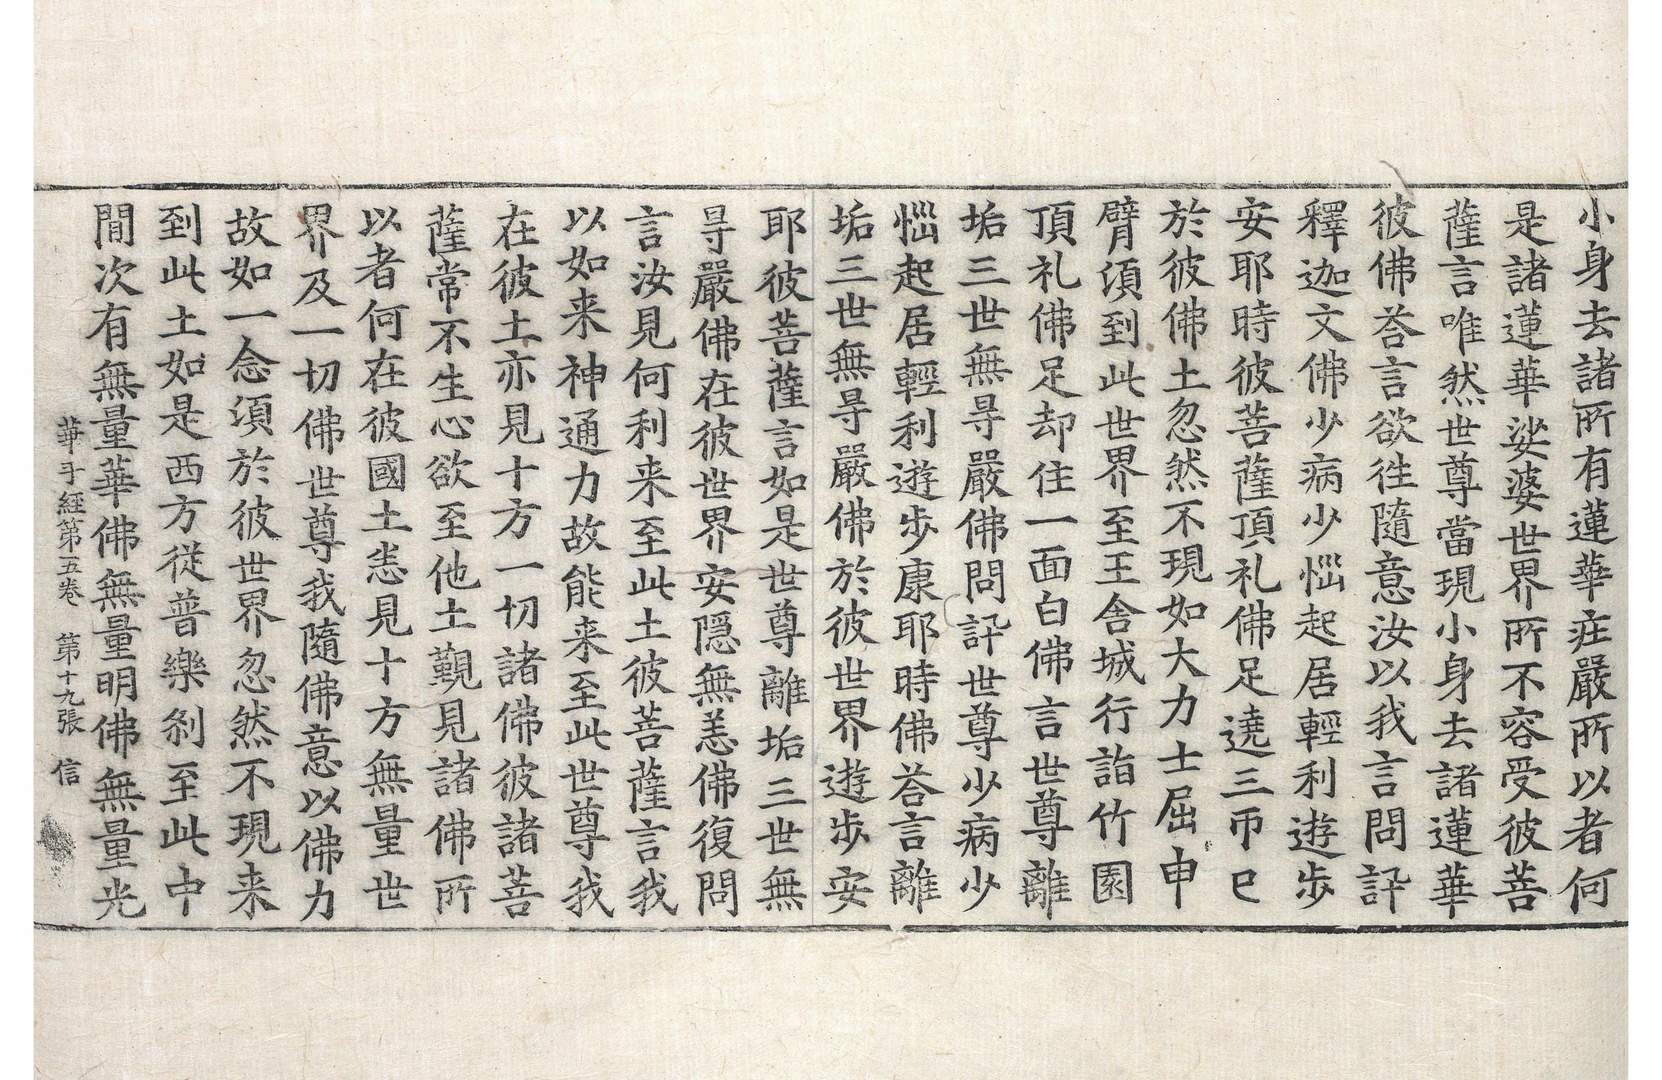 小身去諸所有蓮華庄嚴所以者何
是諸蓮華娑婆世界所不容受彼菩
薩言唯然世尊當現小身去諸蓮華
彼佛荅言欲徃隨意汝以我言問訊
釋迦文佛少病少惱起居輕利遊步
安耶時彼菩薩頂礼佛足遶三帀已
於彼佛土忽然不現如大力士屈申
臂須到此世界至王舍城行詣竹園
頂礼佛足却住一面白佛言世尊離
垢三世無㝵嚴佛問訊世尊少病少
惱起居輕利遊步康耶時佛荅言離
垢三世無㝵嚴佛於彼世界遊步安
耶彼菩薩言如是世尊離垢三世無
㝵嚴佛在彼世界安隱無恙佛復問
言汝見何利来至此土彼菩薩言我
以如来神通力故能来至此世尊我
在彼土亦見十方一切諸佛彼諸菩
薩常不生心欲至他土覲見諸佛所
以者何在彼國土恚見十方無量世
界及一切佛世尊我隨佛意以佛力
故如一念須於彼世界忽然不現来
到此土如是西方従普樂刹至此中
間次有無量華佛無量明佛無量光
華手經第五卷 第十九張 信